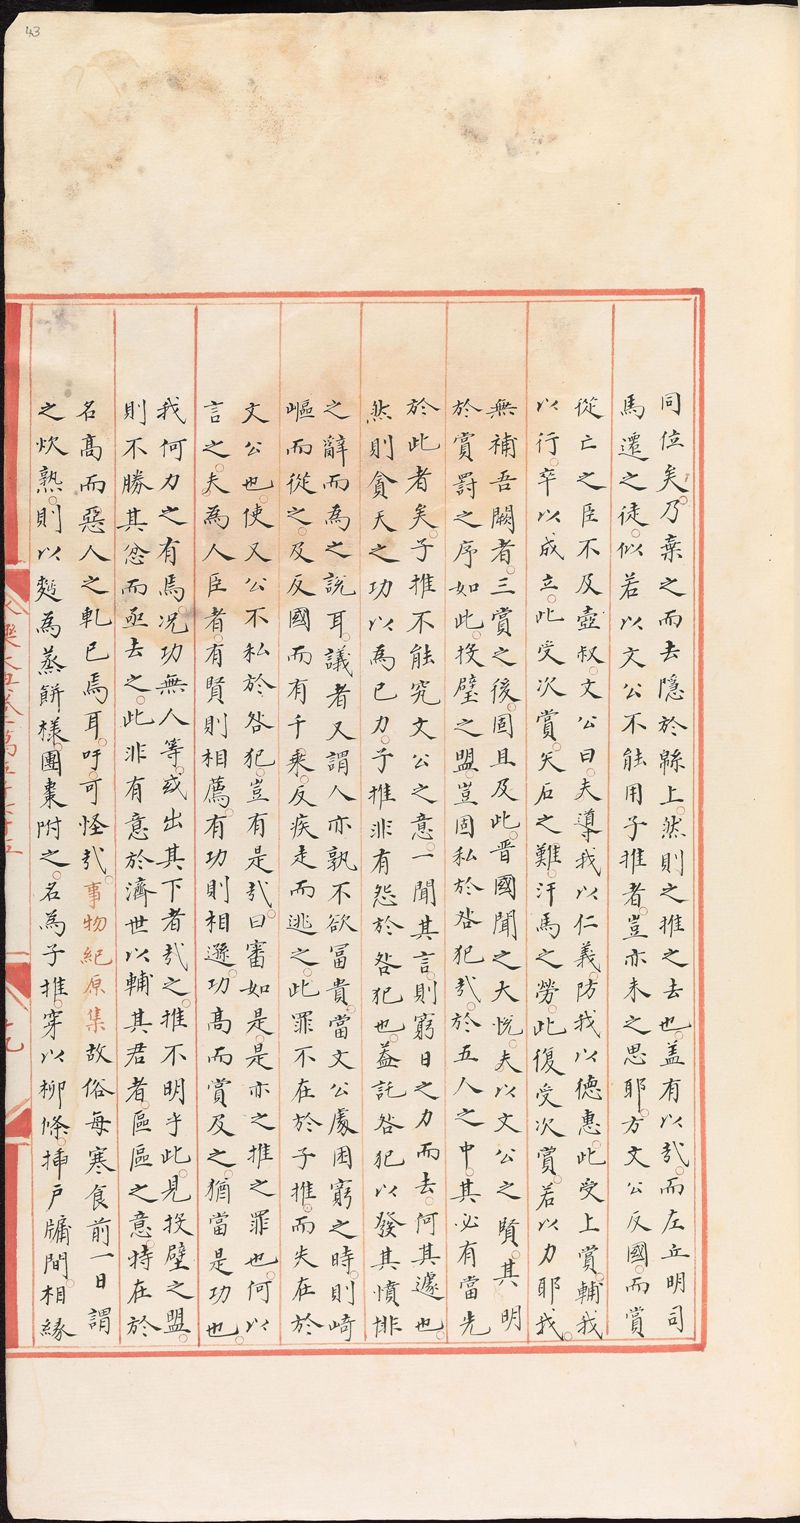 43
同位矣。乃棄之而去隱於緜上。然則之推之去也。蓋有以哉。而左丘明司
馬遷之徒。似若以文公不能用子推者。豈亦未之思耶。方文公反國。而賞
從亡之臣不及壺叔。文公曰。夫導我以仁義。防我以德惠。此受上賞。輔我
以行。卒以成立。此受次賞。矢石之難。汗馬之勞。此復受次賞。若以力耶我。
無補吾闕者。三賞之後。固且及此。晋國聞之大悅。夫以文公之賢。其明
於賞罰之序如此。投璧之盟。豈固私於咎犯哉。於五人之中。其必有當先
於此者矣。子推不能究文公之意。一聞其言。則窮日之力而去。何其遽也。
然則貪天之功以為已力。子推非有怨於咎犯也。葢託咎犯以發其憤悱
之辭而為之說耳。議者又謂人亦孰不欲冨貴。當文公處困窮之時。則崎
嶇而從之。及反國而有千乘。反疾走而逃之。此罪不在於子推。而失在於
文公也。使文公不私於咎犯。豈有是哉。曰。審如是。是亦之推之罪也。何以
言之。夫為人臣者。有賢則相薦。有功則相遜。功高而賞及之。猶當是功也。
我何力之有焉。况功無人等。或出其下者哉。之推不明乎此。見投璧之盟。
則不勝其忿而亟去之。此非有意於濟世以輔其君者。區區之意。特在於
名髙而惡人之軋已焉耳。吁。可怪哉。事物紀原集故俗每寒食前一日謂
之炊熟。則以麫為蒸餅樣。團棗附之。名為子推。穿以柳條。揷戶牖間。相緣